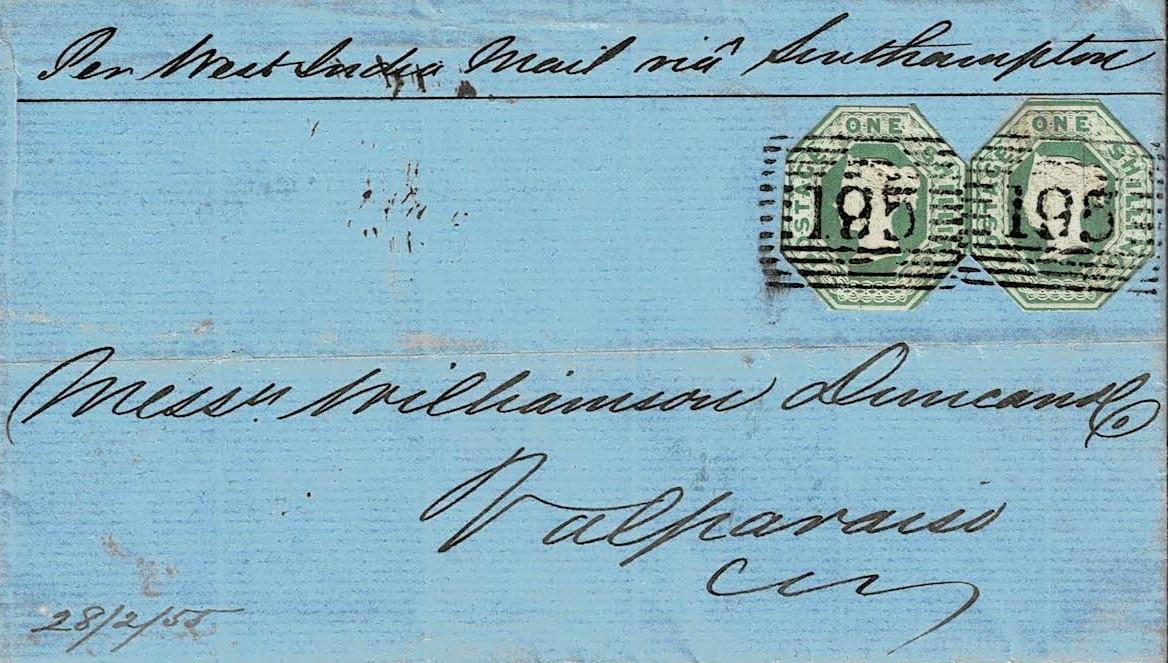 Per West India Mail viâ Southampton
ONE SHILLING POSTAGE
195
ONE SHILLING POSTAGE
195
Messrs Williamson Duncan & Co
Valparaiso
28/2/55